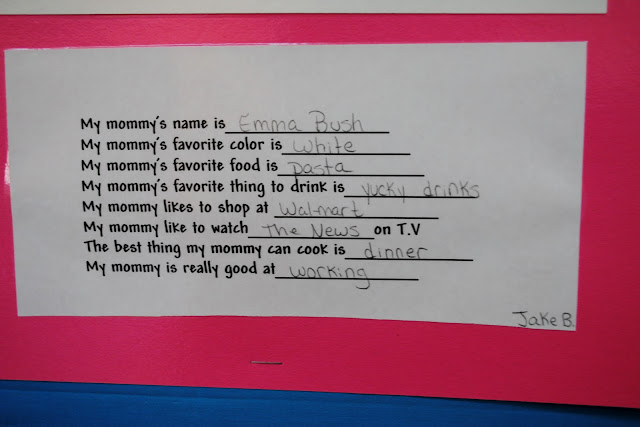 My mommy's name is Emma Bush
My mommy's favorite color is white
My mommy's favorite food is pasta
My mommy's favorite thing to drink is yucky drinks
My mommy likes to shop at Walmart
My mommy like to watch The News on T.V
The best thing my mommy can cook is dinner
My mommy is really good at working
Jake B.